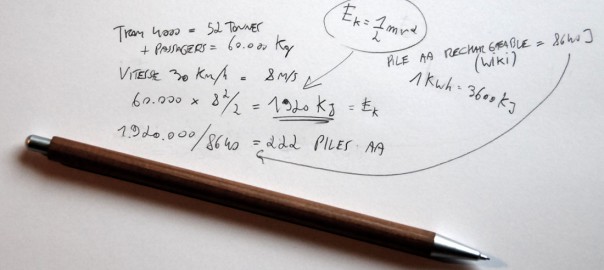 TRAM 4000 = 52 TONNES
+ PASSAGERS = 60.000 Kg
VITESSE 30 KM/h = 8 M/S
60.000 x 8²/2 = 1920 KJ = Ek
1.920.000/8640 = 222 PILES AA
Ek = 1/2 mv²
PILE AA RECHARGEABLE = 8640 J
(WIKI)
1 KWh = 3600 KJ